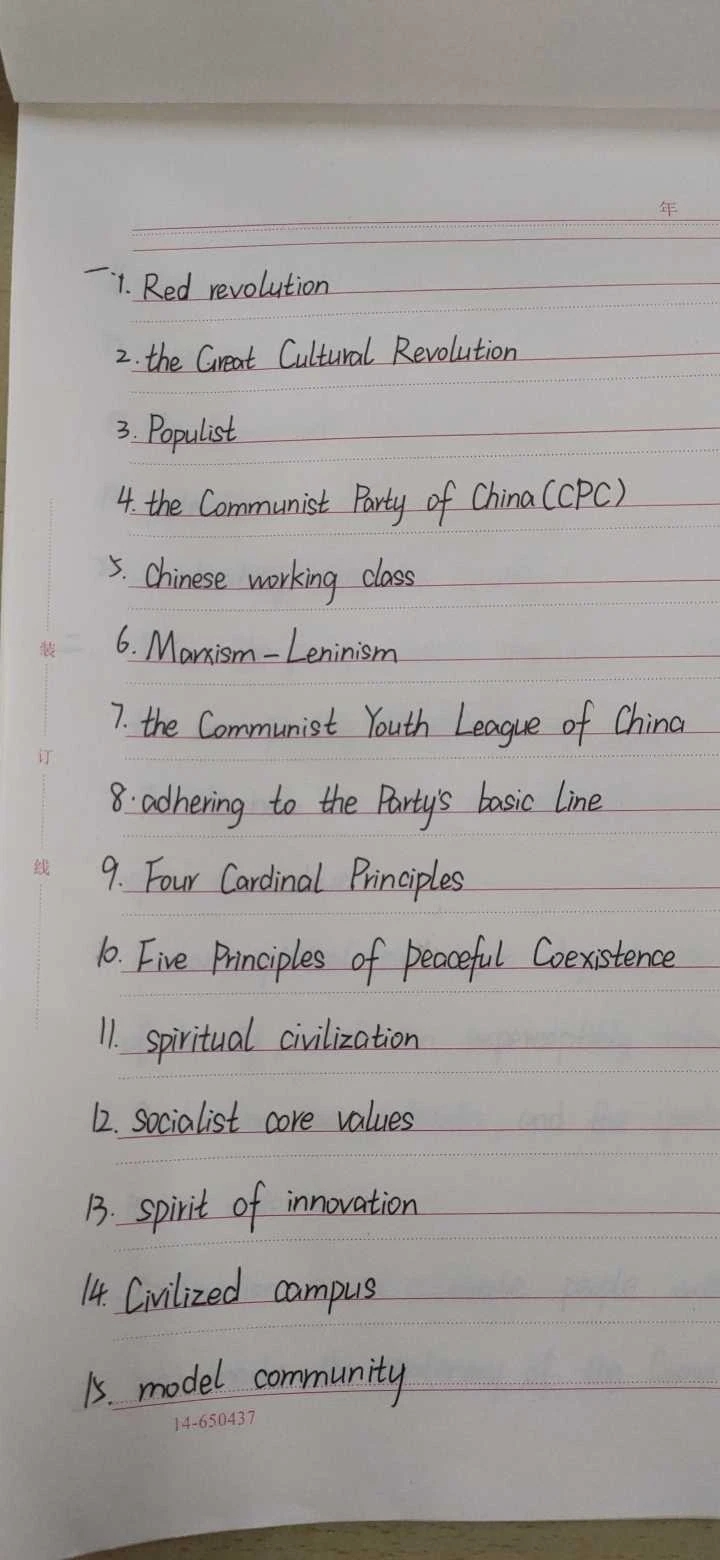 年
一、1. Red revolution
2. the Great Cultural Revolution
3. Populist
4. the Communist Party of China (CPC)
5. Chinese working class
6. Marxism - Leninism
7. the Communist Youth League of China
8. adhering to the Party's basic line
9. Four Cardinal Principles
10. Five Principles of Peaceful Coexistence
11. spiritual civilization
12. Socialist core values
13. spirit of innovation
14. Civilized campus
15. model community
14-650437
装
订
线